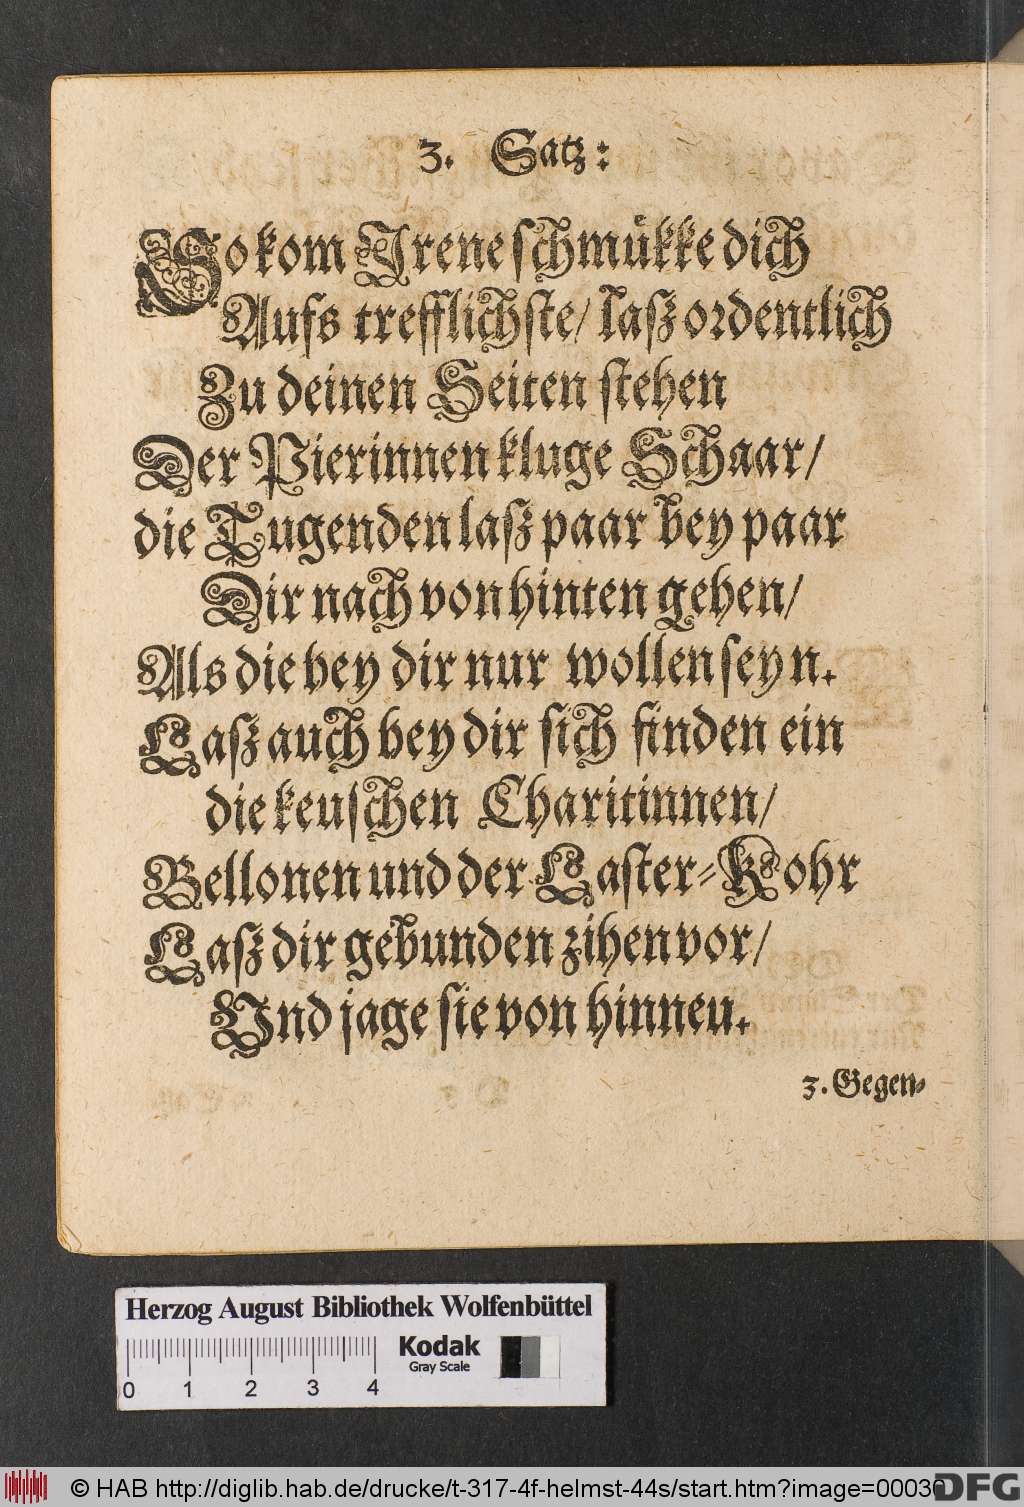 3. Satz:
So kom Irene schmükke dich
Aufs trefflichste/ laß ordentlich
Zu deinen Seiten stehen
Der Pierinnen kluge Schaar/
die Tugenden laß paar bey paar
Dir nach von hinten gehen/
Als die bey dir nur wollen seyn.
Laß auch bey dir sich finden ein
die keuschen Charitinnen/
Bellonen und der Laster-Rohr
Laß dir gebunden zihen vor/
Und jage sie von hinneu.
3. Gegen-
Herzog August Bibliothek Wolfenbüttel
Kodak
Gray Scale
0 1 2 3 4
© HAB http://diglib.hab.de/drucke/t-317-4f-helmst-44s/start.htm?image=00030
DFG